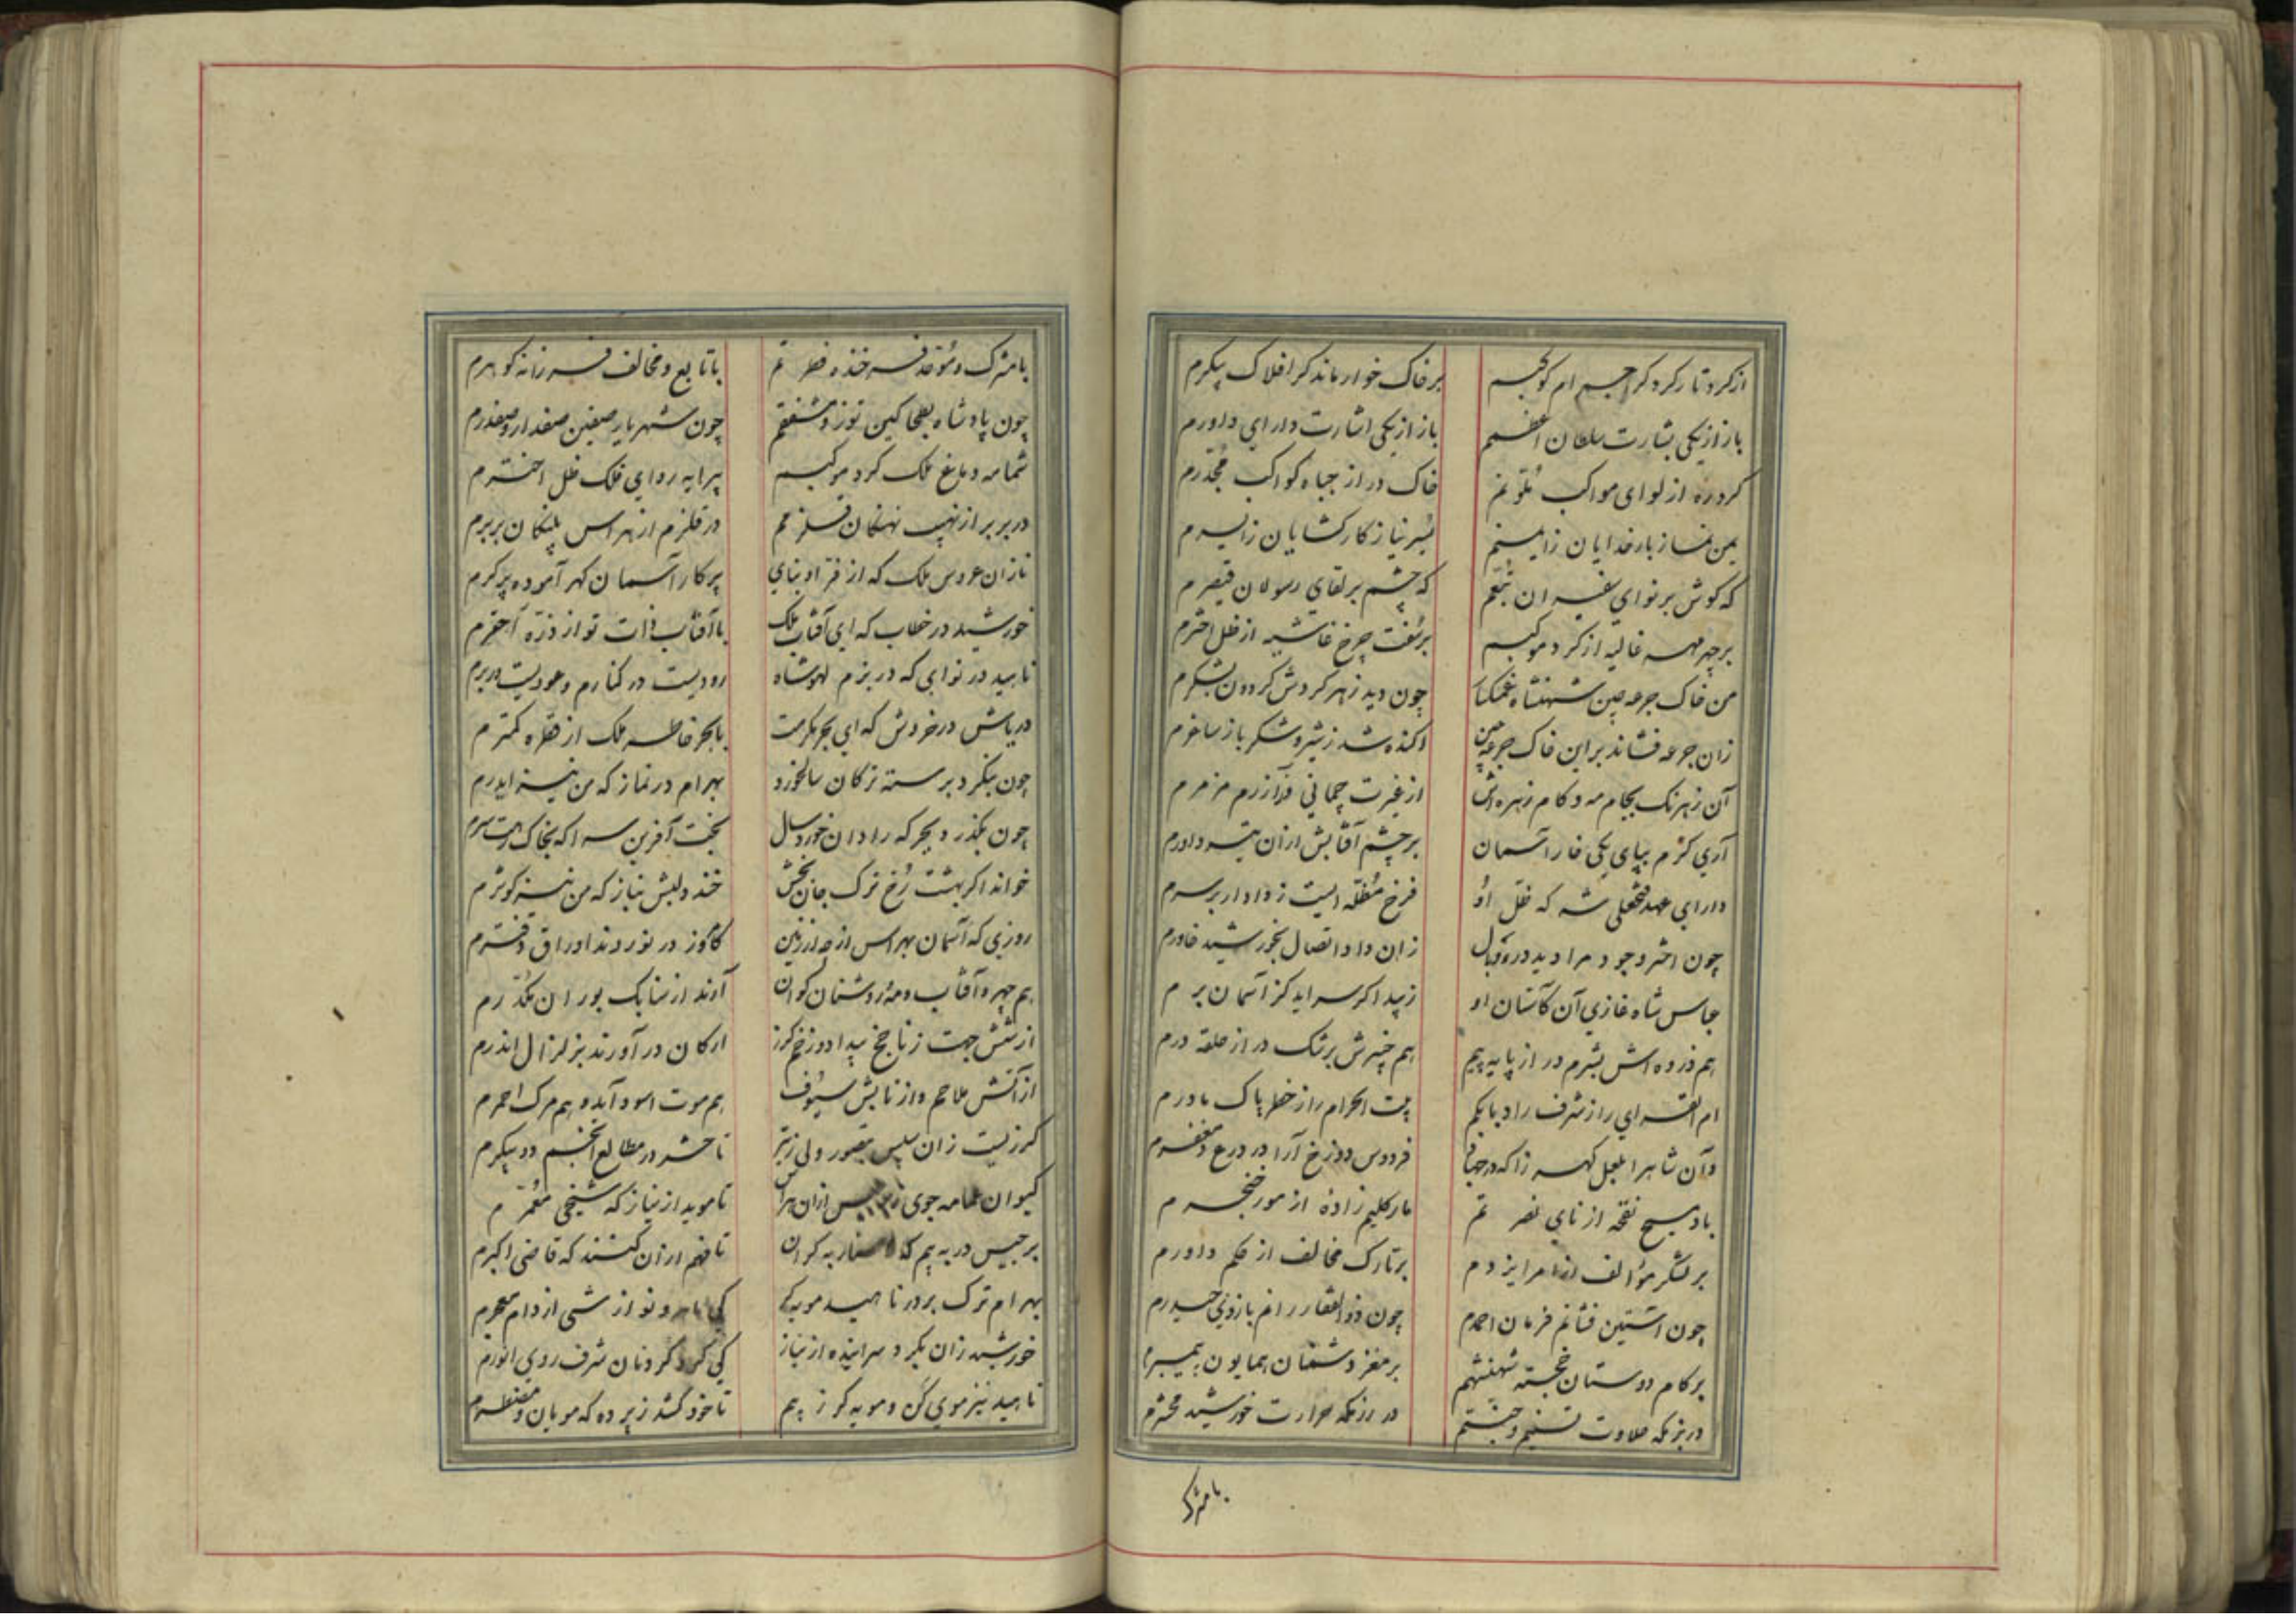 از کرد تارکرد کر اجسام کوکبم
بر خاک خوار ماند کر افلاک پیکرم
باز از یکی بشارت سلطان اعظمم
باز از یکی اشارت دارای داورم
کرد ره از لوای مواکب
خاک در از جباه کواکب مجدرم
بار خدایان
نیاز کارکشایان
که کوش بر نوای سفیران
که چشم بر لقای رسولان قیصرم
بر چهر مهر غالیه از کرد موکبم
چرخ غاشیه از ظل اخترم
من خاک جرعه چین شهنشاه
چون دید زهر کردش کردون بشکرم
زان جرعه فشاند بر این خاک جرعه چین
اکنده شد ز شیر و شکر باز ساغرم
آن زهر نک بجام مه و کام زهره اش
از غیرت
آری کنم بپای یکی خار آسمان
بر چشم آفتابش ازان
دارای عهد فتحعلی شه که ظل او
فرخ مظله ایست ز دادار بر سرم
چون اختر وجود مرا دید در وبال
زان داد اتصال بخورشید خاورم
عباس شاه غازی آن کآستان او
زیبد اکر سراید کز آسمان برم
هم ذروه اش بشرم در از پایه
هم چنبرش برشک در از حلقه درم
ام القرای را ز شرف راد بابکم
بیت الحرام را ز خطر پاک مادرم
وآن شاه را بفعل کهر زا که در جهان
فردوس دوزخ آرا در درع و مغفرم
باد مسیح نفخه از نای نصرتم
مار کلیم زاده از مور خنجرم
بر لشکر مؤالف از امر ایزدم
بر تارک مخالف از حکم داورم
چون آستین فشانم فرمان احمدم
چون ذوالفقار رانم بازوی حیدرم
بر کام دوستان خجسته شهنشهم
بر مغز دشمنان همایون پیمبرم
در بزمکه حلاوت تسنیم و جنتم
در رزمکه حرارت خورشید محشرم
با مشرک
با مشرک و موحد فرخنده فطرتم
با تابع و مخالف فرزانه کوهرم
چون پادشاه کین توز و مشفقم
چون شهریار صفین صفدار و صفدرم
شمامه دماغ ملک کرد موکبم
پیرایه ردای فلک ظل اخترم
در بربر از نهیب نهنکان قلزمم
در قلزم از هراس پلنکان بربرم
نازان عروس ملک که از فر
پرکار آسمان کهر آموده پرکرم
خورشید در خطاب که ای آفتاب ملک
با آفتاب ذات تو از ذره احقرم
ناهید در نوای که در بزم لهو شاه
رودیست در کنارم و عودیست در برم
دریاش در خروش که ای بحر مکرمت
با بحر خاطر ملک از قطره کمترم
چون بنکرد برسته ترکان سالخورد
بهرام در نماز که من نیز ایدرم
چون بکذرد بجرکه رادان خورد سال
بخت آفرین سرا که بخاک رهت سرم
خواند اکر بهشت رخ ترک جان بخش
خندد لبش بناز که من نیز کوثرم
روزی که آسمان بهراس از صدا زنان
کاکنون در نوردند اوراق دفترم
هم چهر و آفتاب و مه و روشنان کوان
آرند از سنابک بوران مکدرم
از شش جهت ز ناچخ بیداد و زخم کرز
ارکان در آورند بزلزال اندرم
از آتش ملاحم و از تابش سیوف
هم موت اسود آید و هم مرک احمرم
کرز زان سپس
تا حشر در مطالع انجم دو پیکرم
کیوان عمامه جوی
تا موید از نیاز که شیخی معمرم
برجیس در به بیم که
تا فهم ازان کنند که قاضی اکبرم
بهرام ترک بر در ناهید مویه کر
از شی از دام معجرم
خورشید زان بکرد سراینده از نیاز
کی کرد کردنان شرف روی انورم
ناهید نیز موی کن و مویه کر ز بیم
تا خود کشد ز پرده که مویان و مضطرم